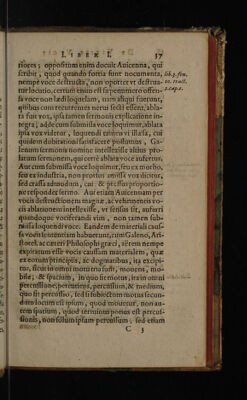 LIBER I. 37
riores; oppositum enim docuit Auicenna, qui
scribit, quod quando fortia sunt nocumenta,
nempè voce destructa, non oportet vt destrua-
tur locutio, certum enim est sæpenumero offen-
sa voce non lædi loquelam, nam aliqui fuerunt,
quibus cum recurrentes nerui secti essent, abla-
ta fuit vox, ipsa tamen sermonis explicatione in-
tegra; adde cum submissa voce loquimur, ablata
ipsa vox videtur, loquendi tamen vi illæsa, cui
quidem dubitationi satisfacere possumus, Ga-
lenum sermonis nomine intellexisse altius pro-
latum sermonem, qui certè ablata voce aufertur.
Aut cum submissa voce loquimur, seu ex morbo,
seu ex industria, non prorsus amissa vox dicitur,
sed
& respondet sermo. Aut etiam Auicennam per
vocis destructionem magis, ac vehementem vo-
cis ablationem intellexisse, vt sensus sit, auferri
quandoque vociferandi vim, non tamen sub-
missa loquendi voce. Eandem de materiali caus-
sa vocis sententiam habuerunt, cum Galeno, Ari-
stotel. ac cæteri Philosophi græci, assem nempe
expiratum esse vocis caussam materialem, quæ
ex eorum principiis, & dogmatibus, ita excipi-
tur, sicut in omni motu tria sunt, mouens, mo-
bile, & spatium, in quo fit motus, ita in omni
percussione, percutiens, percussum, & medium,
quo fit percussio, sed si subiectum motus secun-
dum locum est ipsum, quod mouetur, non au-
tem spatium, quod terminus potius est percus-
sionis, non solùm ipsam percussum; sed etiam
C 3
lib. 3. fen.
10. tract.
2. cap. 1.